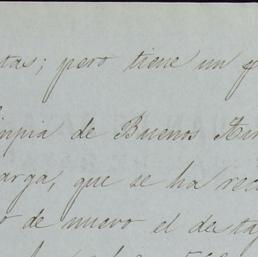 tas; pero tiene un
impia de Buenos Air
arga, que se ha rec
o de nuevo el desta